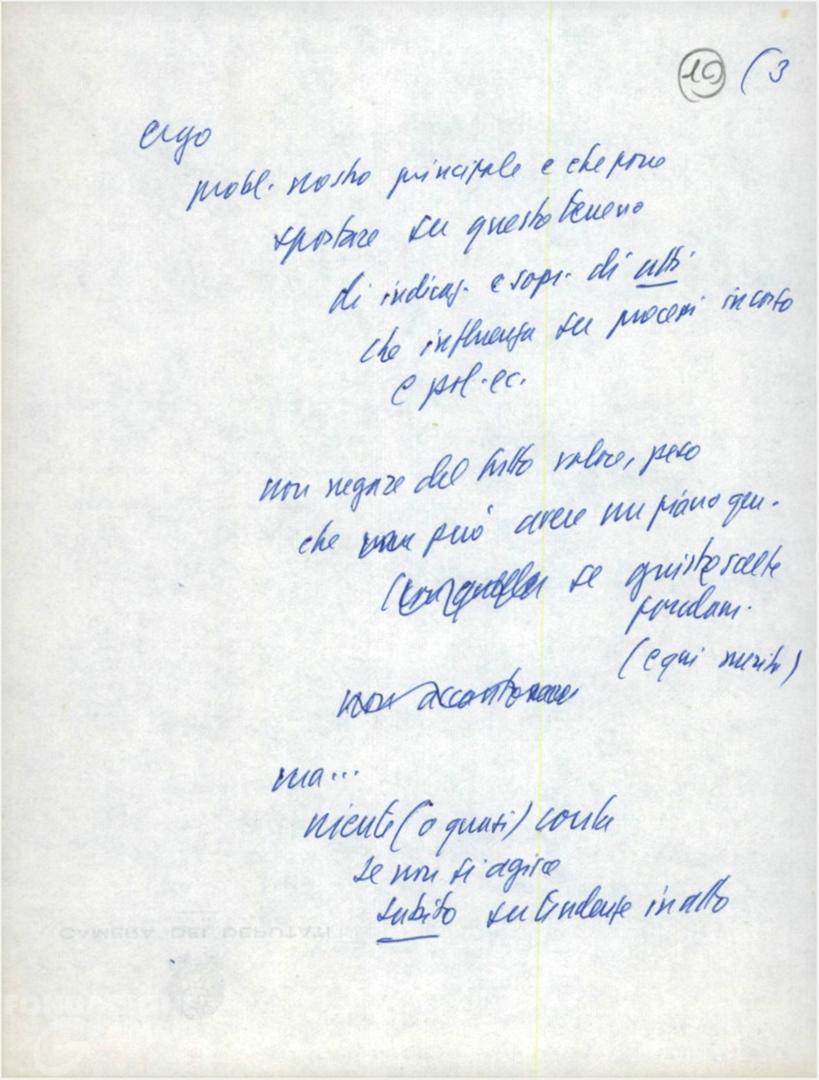 19 (3
ergo
probl. nostro principale e che pone
spostare su questo terreno
di indicaz. e sopr. di atti
che influenza su processi in corso
e pol. ec.
non negare del tutto valore, peso
che può avere un piano qu.
se giuste scelte
fondam.
(e qui merito)
non accantonare
ma...
niente (o quasi) conta
se non si agisce
subito su tendenze in atto
CAMERA DEI DEPUTATI
FONDAZIONE